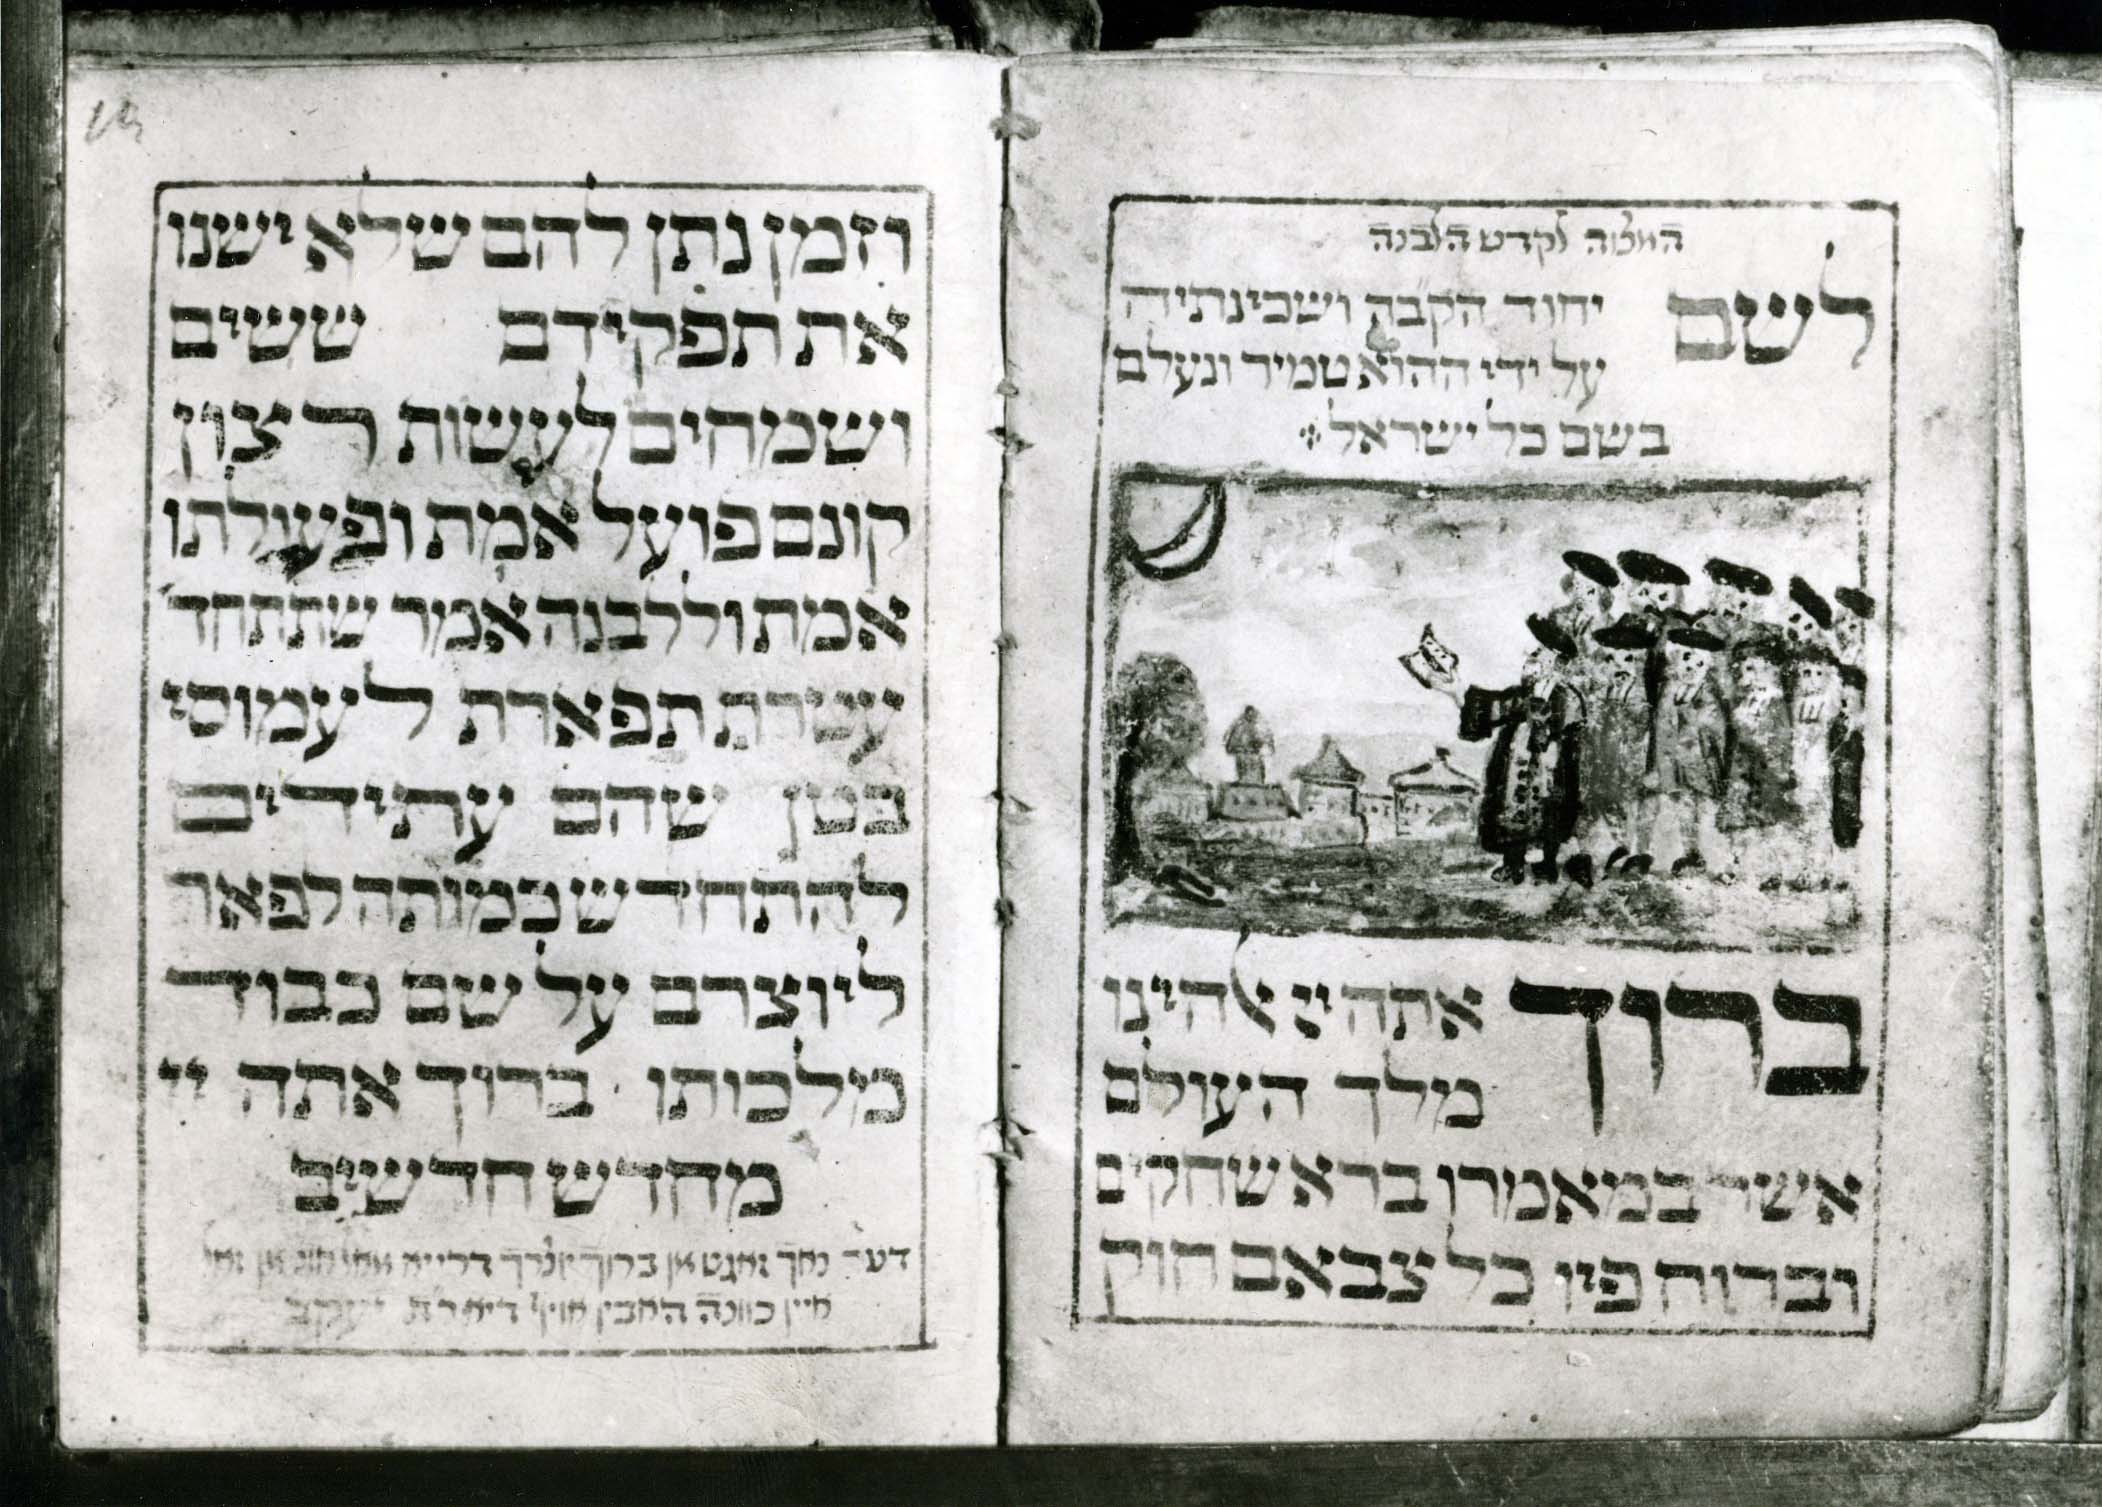 המצוה לקדש הלבנה
לשם יחוד הקבה ושכינתיה
על ידי ההוא טמיר ונעלם
בשם כל ישראל
ברוך אתה יי אלהינו
מלך העולם
אשר במאמרו ברא שחקים
וברוח פיו כל צבאם חוק
וזמן נתן להם שלא ישנו
את תפקידם ששים
ושמחים לעשות רצון
קונם פועל אמת ופעולתו
אמת וללבנה אמר שתתחד
עטרת תפארת לעמוסי
בטן שהם עתידים
להתחדש כמותה לפאר
ליוצרם על שם כבוד
מלכותו ברוך אתה יי
מחדש חדשים
דער נאך זאגט מן ברוך יוצרך דרייא מאל אונ מן זאל
איין כוונה האבין אויף דיא ר״ת יעקב